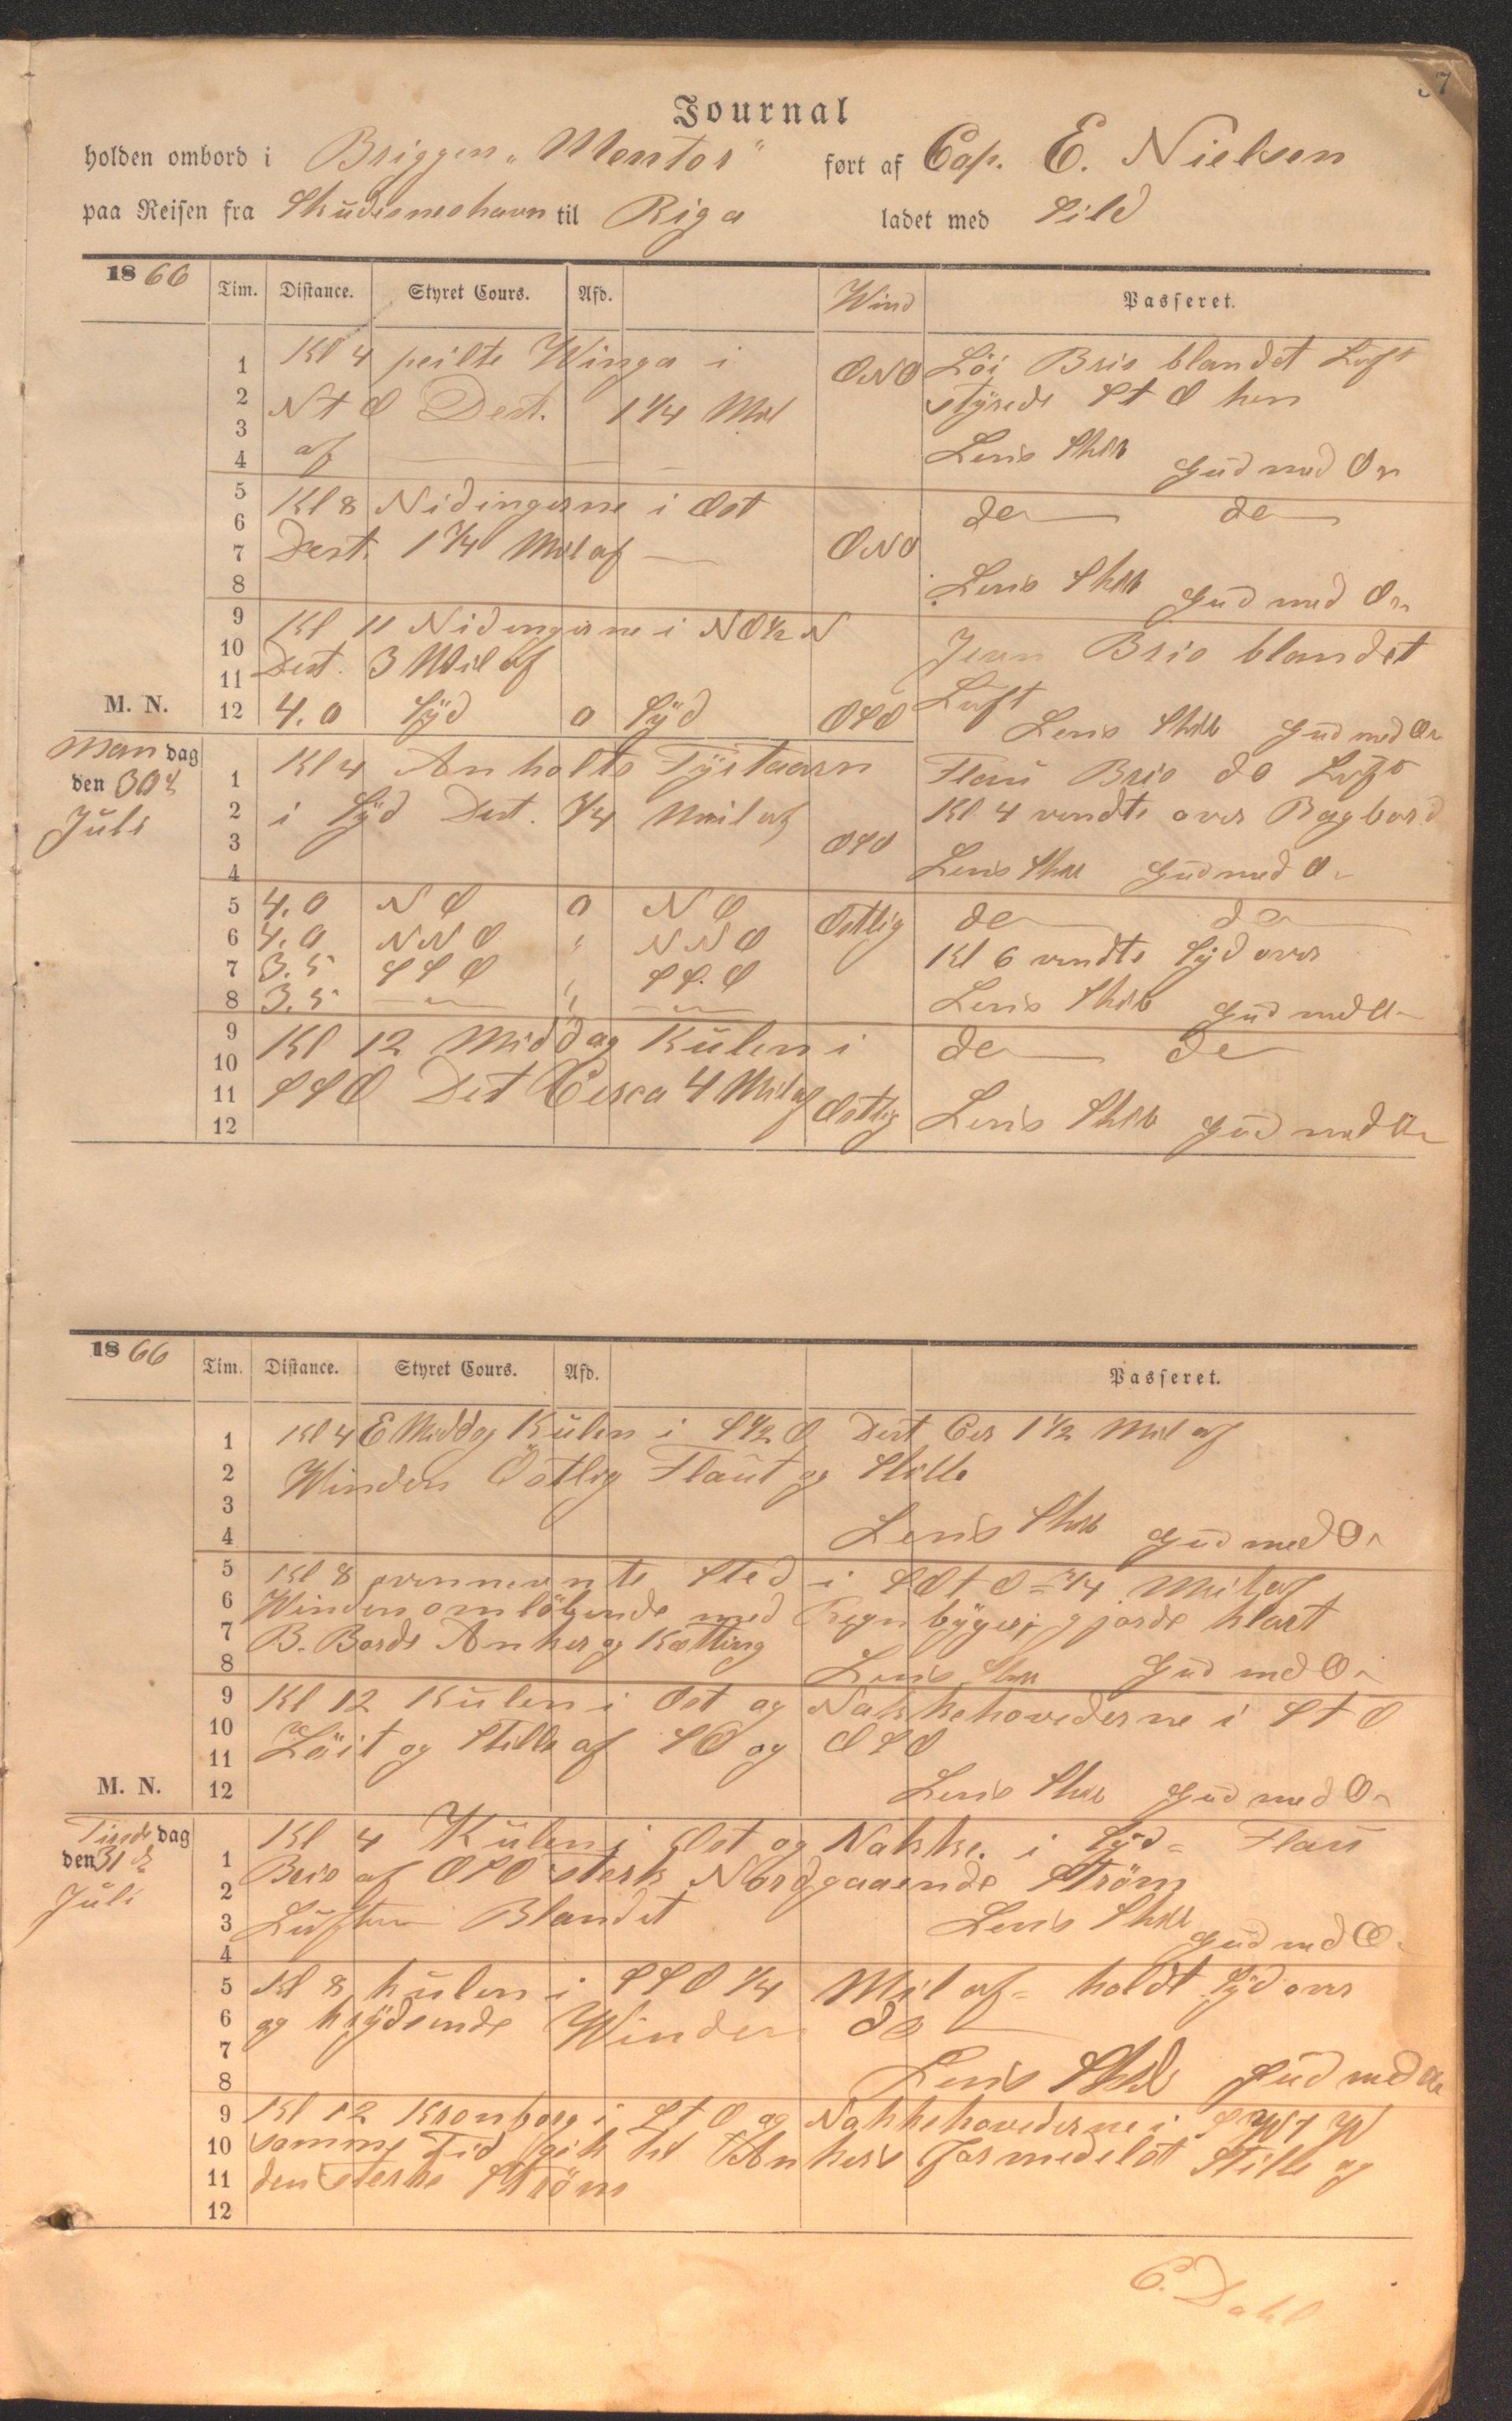 7
Journal
holden ombord i Briggen „Mentor" ført af Cap. E. Nielsen
paa Reisen fra Skudesneshavn til Riga ladet med Sild
1866 Tim. Distance. Styret Cours. Afd. Wind Passeret.
1 Kl 4 peilte Winga i ONO Löi Bris blandet Luft
2 N t O Dest. 1 1/4 Mil styrede S t O hen
3
4 af Lens Skib Gud med Os
5 Kl 8 Nidingerne i Ost do do
6
7 Dest. 1 1/4 Mil af ONO
8 Lens Skib Gud med Os
9 Kl 11 Nidingerne i NO 1/2 N Jevn Bris blandet
10
11 Dest. 3 Mil af Luft
M. N. 12 4.0 Syd 0 Syd OSO Lens Skib Gud med Os
Mandag
den 30te
Juli
1 Kl 4 Anholts Fyrtaarn Flau Bris do Luft
2 i Syd Dest. 3/4 Mil af Kl 4 vendte over Bagbord
3 OSO
4 Lens Skib Gud med Os
5 4.0 NO 0 NO Ostlig do do
6 4.0 NNO " NNO Kl 6 vendte Syd over
7 3.5 SSO " SS.O
8 3.5 — " — " — " — Lens Skib Gud med Os
9 Kl 12 Middag Kulen i do do
10
11 SSO Dest Circa 4 Mil af Ostlig Lens Skib Gud med Os
12
1866 Tim. Distance. Styret Cours. Afd. Passeret.
1 Kl 4 E Middag Kulen i S 1/2 O Dest Cir 1 1/2 Mil af
2 Winden Östlig Flaut og Stille
3
4 Lens Skib Gud med Os
5 Kl 8 ovennevnte Sted i SO t O = Mil af
6 Winden omlöbende med Regnbyger; gjorde klart
7 B. Bords Anker og Kætting
8 Lens Skib Gud med Os
9 Kl 12 Kulen i Ost og Nakkehovederne i S t O
10 Löit og Stille af SO og OSO
11
M. N. 12 Lens Skib Gud med Os
Tirsdag
den 31te
Juli
1 Kl 4 Kulen i Ost og Nakke. i Syd = Flau
2 Bris af OSO sterk Nordgaaende Ström
3 Luften Blandet Lens Skib Gud med Os
4
5 Kl 8 Kulen i SSO 1/4 Mil af = holdt Syd over
6 og krydsende Winden do
7
8 Lens Skib Gud med Os
9 Kl 12 Kronborg i S t O og Nakkehovederne i
10 samme Tid gik til Ankers Formedelst Stille og
11 den sterke Ström
12
C. Dahl